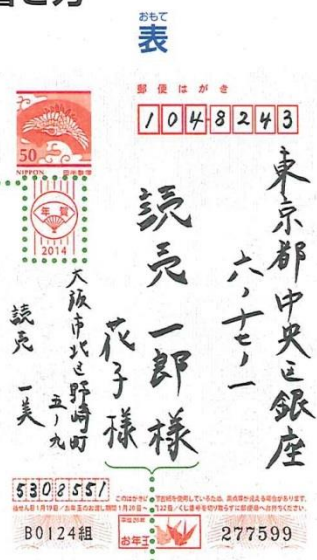 書き方
おもて
表
郵便はがき
1048243
50
NIPPON 日本郵便
年賀
2014
東京都中央区銀座
六ノ十七ノ一
読売一郎様
花子様
大阪市北区野崎町
五ノ九
読売一美
5308551
お年玉
B0124組
277599